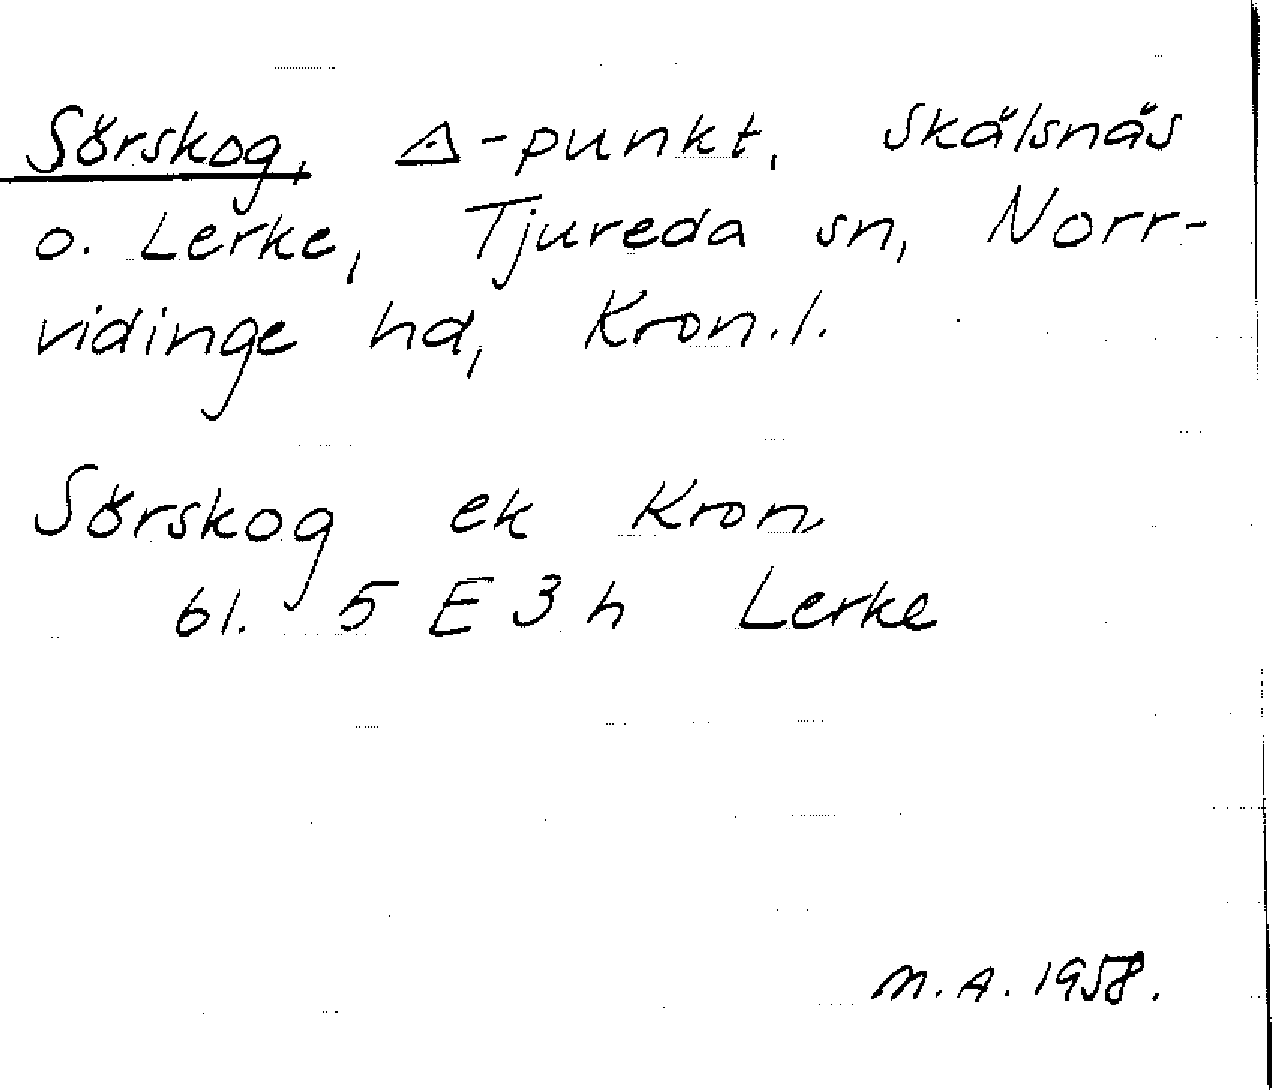 Sörskog, △-punkt, Skälsnäs
o. Lerke, Tjureda sn, Norr-
vidinge hd, Kron.l.
Sörskog ek Kron
bl. 5 E 3 h Lerke
M.A. 1958.